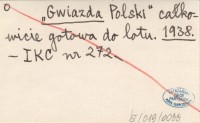 o
„Gwiazda Polski" całko-
wicie gotowa do lotu. 1938.
— IKC nr 272.